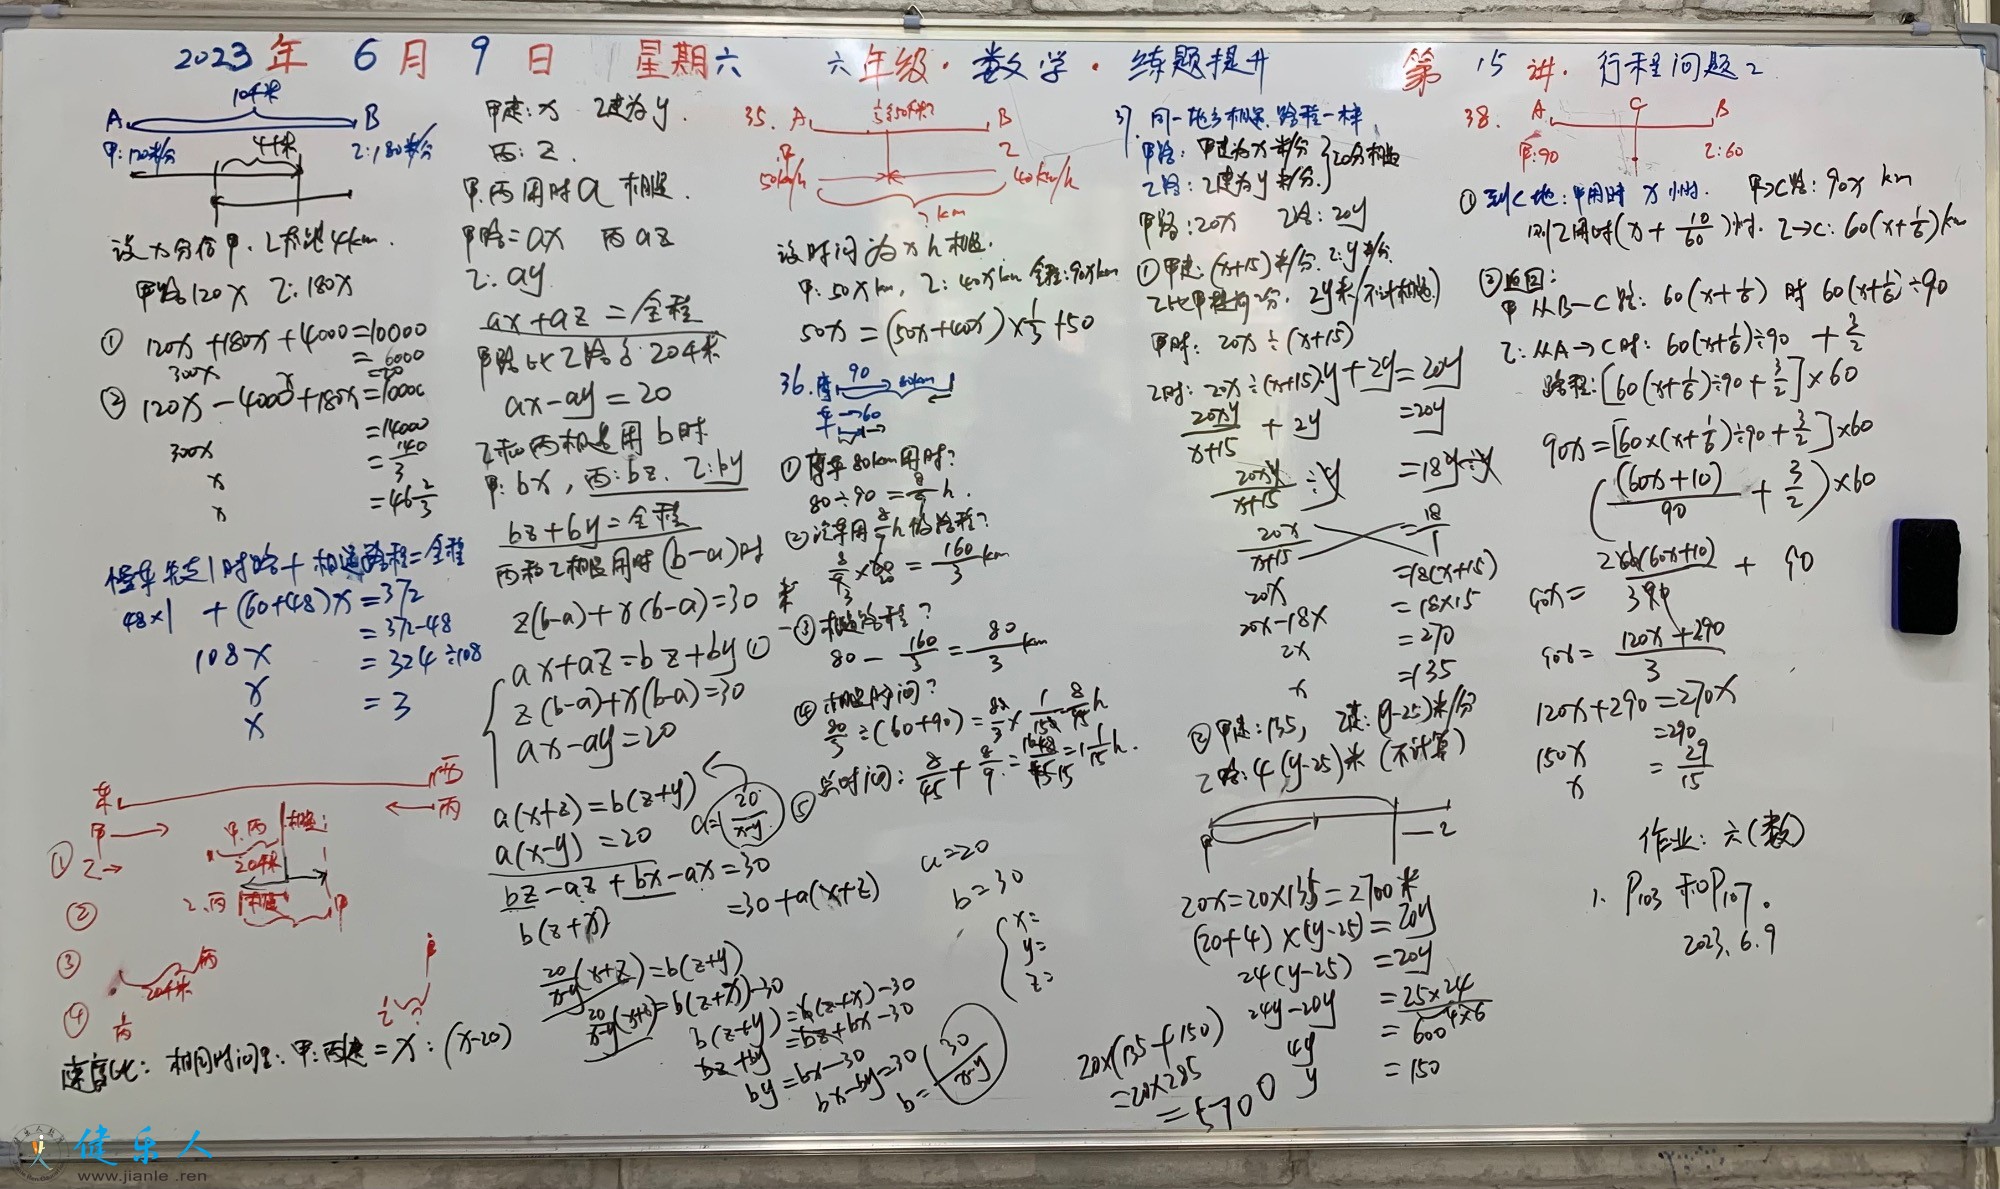 2023年 6月 9日 星期六 六年级·数学·练题提升 第15讲·行程问题2
A B
甲:120米/分 乙:180米/分
4千米
甲路120x 乙:180x
① 120x+180x+4000=10000
300x =6000
② 120x-4000+180x=10000
300x =14000
x =140/3
x =46 2/3
慢车先走1时路+相遇路程=全程
48×1+(60+48)x=372
=372-48
108x =324÷108
x =3
x
东 西
甲→ ←丙
① 乙→
甲.丙 相遇
204米
② 乙.丙 相遇 甲
③ 204米 丙
④
速度比: 相同时间里: 甲:丙速=x:(x-20)
甲速:x 乙速为y.
丙:z.
甲.丙用时a相遇.
甲路=ax 丙az
乙:ay
ax+az=全程
甲路比乙路多:204米
ax-ay=20
乙和丙相遇用b时
甲:bx,丙:bz.乙:by
bz+by=全程
丙和乙相遇用时(b-a)时
z(b-a)+x(b-a)=30
ax+az=bz+by ①
z(b-a)+x(b-a)=30
ax-ay=20
a(x+z)=b(z+y)
a(x-y)=20 a=20/x-y
bz-az+bx-ax=30
b(z+x) =30+a(x+z)
20/x-y(x+z)=b(z+y)
20/x-y(x+z)=b(z+x)-30
b(z+y)=b(z+x)-30
bz+by=bz+bx-30
by=bx-30
bx-by=30
b=30/x-y
35. A B
甲 乙
50km/h 40km/h
? km
设时间为x h相遇.
甲:50x km, 乙:40x km 全程:90x km
50x=(50x+40x)×1/3+50
36. 摩 90 80km
车→60
① 摩车80km用时?
80÷90=8/9 h.
② 汽车用8/9h的路程?
8/9×60=160/3 km
③ 相遇路程?
80-160/3=80/3 km
④ 相遇时间?
80/3÷(60+90)=80/3×1/150=8/45 h
⑤ 总时间:8/45+8/9=48/45=1 1/15 h.
a=20
b=30
x=
y=
z=
37. 同一地多相遇,路程一样
甲路:甲速为x米/分 20分相遇
乙路:乙速为y米/分.
甲路:20x 乙路:20y
① 甲速:(x+15)米/分.乙:y米/分
甲时: 20x÷(x+15)
乙时: 20x÷(x+15)·y+2y=20y
20xy/x+15 + 2y =20y
20xy/x+15 ÷y =18y÷y
20x/x+15 =18/1
20x =18(x+15)
20x-18x =18×15
2x =270
x =135
② 甲速:135, 乙速:(y-25)米/分
乙路:4(y-25)米(不计算)
20x=20×135=2700米
(20+4)×(y-25)=20y
24(y-25) =20y
24y-20y =25×24
4y =600
y =150
20×(135+150)
=20×285
=5700
38. A C B
甲:90 乙:60
① 到C地:甲用时x小时. 甲→C路:90x km
则乙用时(x+10/60)时. 乙→C:60(x+1/6)km
② 返回:
甲从B→C路:60(x+1/6) 时 60(x+1/6)÷90
乙:从A→C时:60(x+1/6)÷90+3/2
路程:[60(x+1/6)÷90+3/2]×60
90x=[60×(x+1/6)÷90+3/2]×60
((60x+10)/90+3/2)×60
90x=120x+290/3
120x+290=270x
150x =290
x =29/15
作业:六(数)
1. P103和P107。
2023.6.9
健乐人
www.jianle.ren